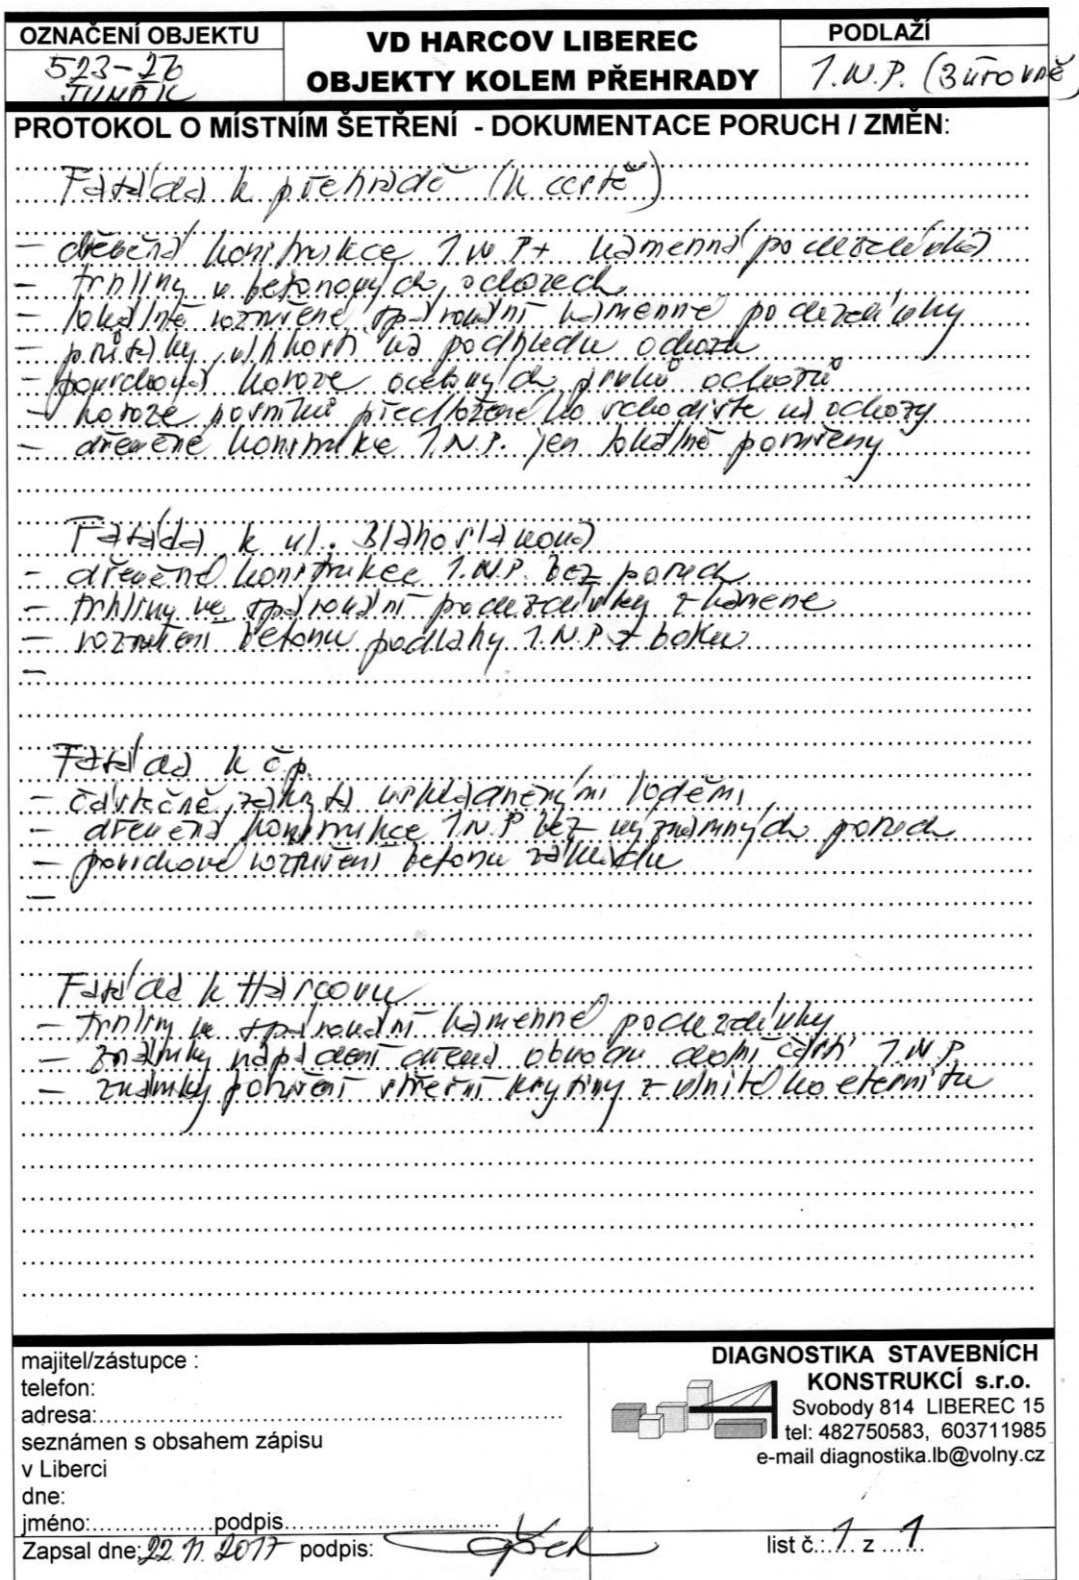 OZNAČENÍ OBJEKTU
523-26
JUNÁK
VD HARCOV LIBEREC
OBJEKTY KOLEM PŘEHRADY
PODLAŽÍ
1.N.P. (3 úrovně)
PROTOKOL O MÍSTNÍM ŠETŘENÍ - DOKUMENTACE PORUCH / ZMĚN:
Fasáda k přehradě (k cestě)
- dřevěná konstrukce 1.N.P + kamenná podezdívka
- trhliny v betonových ochozech
- lokálně rozrušené spárování kamenné podezdívky
- průsaky vlhkosti na podhledu ochozu
- povrchová koroze ocelových prvků ochozů
- koroze povrchů předloženého schodiště na ochozy
- dřevěné konstrukce 1.N.P. jen lokálně porušeny
Fasáda k ul. Blahoslavova
- dřevěné konstrukce 1.N.P. bez poruch
- trhliny ve spárování podezdívky z kamene
- rozrušení betonu podlahy 1.N.P. z boku
-
Fasáda k čp.
- částečně zakrytá uskladněnými loděmi
- dřevěná konstrukce 1.N.P bez významných poruch
- povrchové rozrušení betonu základu
-
Fasáda k Harcovu
- trhliny ve spárování kamenné podezdívky
- známky napadení dřeva obvodu dolní části 1.N.P.
- známky porušení střešní krytiny z vlnitého eternitu
majitel/zástupce :
telefon:
adresa:
seznámen s obsahem zápisu
v Liberci
dne:
jméno:................podpis
Zapsal dne: 22.11.2017 podpis:
DIAGNOSTIKA STAVEBNÍCH
KONSTRUKCÍ s.r.o.
Svobody 814 LIBEREC 15
tel: 482750583, 603711985
e-mail diagnostika.lb@volny.cz
list č.: 1 z 1